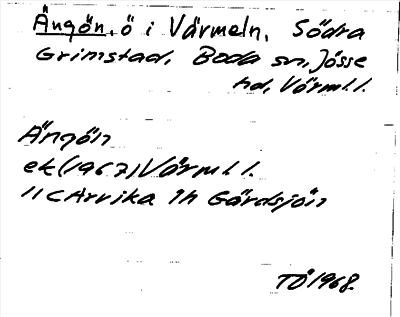 Ängön, ö i Värmeln, Södra
Grimstad, Boda sn, Jösse
hd, Värml.l.
Ängön
ek (1967) Värml l.
11 C Arvika 1h Gärdsjön
TÖ 1968.